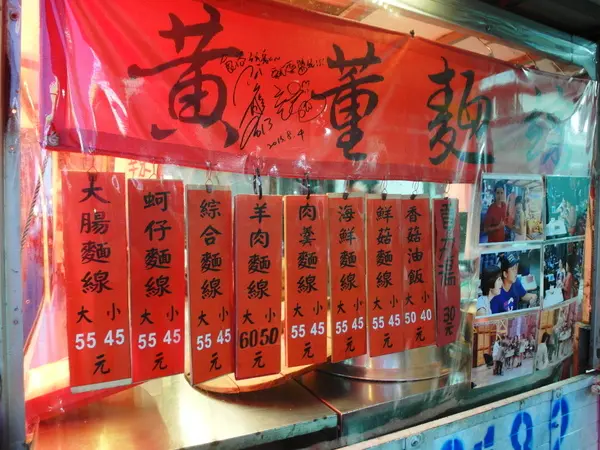 黃董麵
2015.8.4
大腸麵線 大55 小45 元
蚵仔麵線 大55 小45 元
綜合麵線 大55 小45 元
羊肉麵線 大60 小50 元
肉羹麵線 大55 小45 元
海鮮麵線 大55 小45 元
鮮菇麵線 大55 小45 元
香菇油飯 大50 小40 元
30元